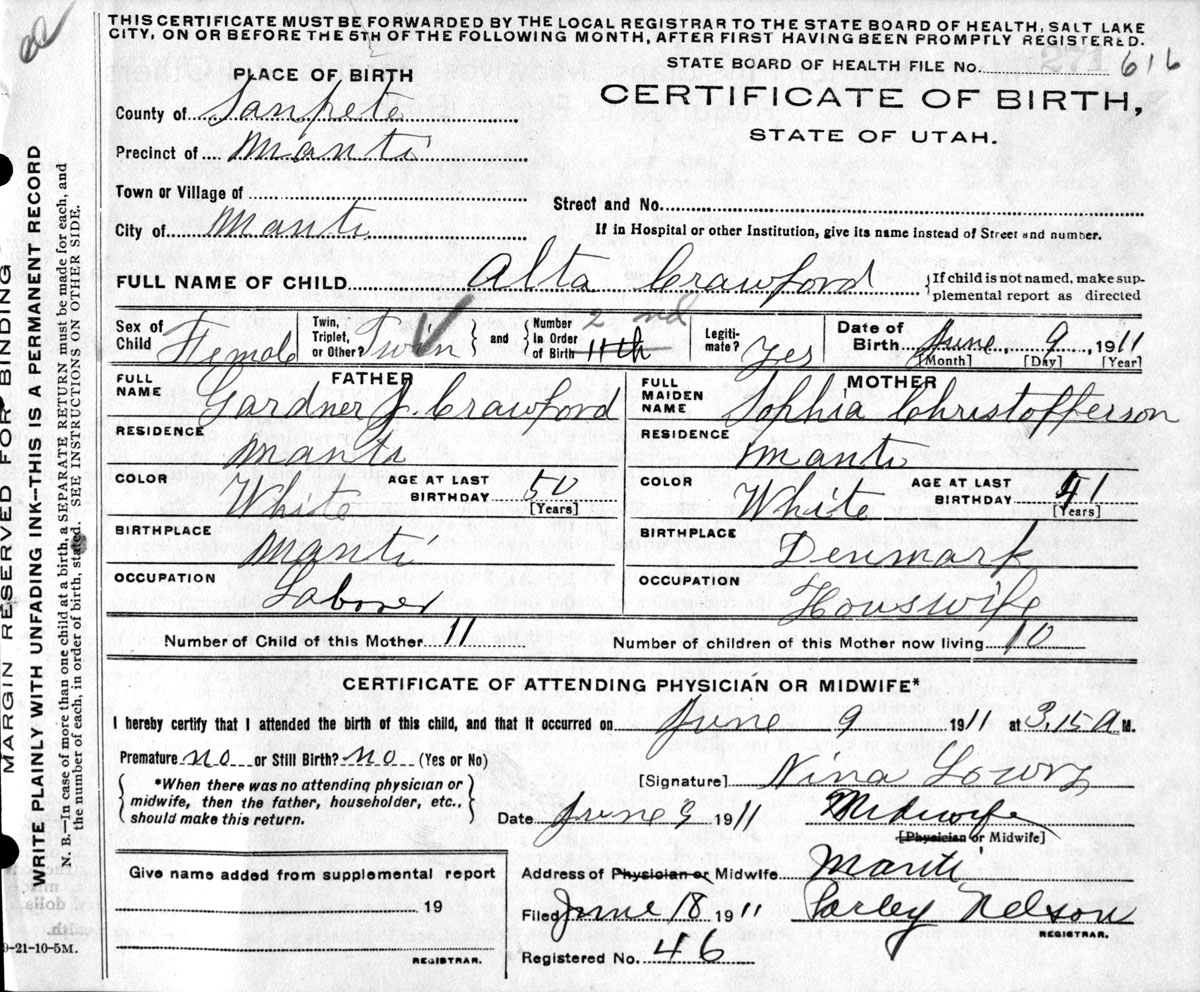 THIS CERTIFICATE MUST BE FORWARDED BY THE LOCAL REGISTRAR TO THE STATE BOARD OF HEALTH, SALT LAKE
CITY, ON OR BEFORE THE 5TH OF THE FOLLOWING MONTH, AFTER FIRST HAVING BEEN PROMPTLY REGISTERED.
STATE BOARD OF HEALTH FILE No. 616
PLACE OF BIRTH
CERTIFICATE OF BIRTH,
STATE OF UTAH.
County of Sanpete
Precinct of Manti
Town or Village of
Street and No.
City of Manti
If in Hospital or other Institution, give its name instead of Street and number.
FULL NAME OF CHILD Alta Crawford {If child is not named, make sup-
plemental report as directed
Sex of Child Female
Twin, Triplet, or Other? Twin } and { Number in Order of Birth 11th 2nd
Legiti-mate? Yes
Date of Birth June 9, 1911
[Month] [Day] [Year]
FATHER
FULL NAME Gardner J. Crawford
RESIDENCE Manti
COLOR White AGE AT LAST BIRTHDAY 50
[Years]
BIRTHPLACE Manti
OCCUPATION Laborer
MOTHER
FULL MAIDEN NAME Sophia Christofferson
RESIDENCE Manti
COLOR White AGE AT LAST BIRTHDAY 41
[Years]
BIRTHPLACE Denmark
OCCUPATION Houswife
Number of Child of this Mother 11 Number of children of this Mother now living 10
CERTIFICATE OF ATTENDING PHYSICIAN OR MIDWIFE*
I hereby certify that I attended the birth of this child, and that it occurred on June 9 1911 at 3,15 A M.
Premature no or Still Birth? no (Yes or No)
{ *When there was no attending physician or
midwife, then the father, householder, etc.,
should make this return. }
[Signature] Nina Lowry
Date June 9 1911 Midwife
[Physician or Midwife]
Address of Physician or Midwife Manti
Filed June 18 1911 Parley Nelson
REGISTRAR.
Registered No. 46
Give name added from supplemental report
19
REGISTRAR.
9-21-10-5M.
MARGIN RESERVED FOR BINDING
WRITE PLAINLY WITH UNFADING INK—THIS IS A PERMANENT RECORD
N. B.—In case of more than one child at a birth, a SEPARATE RETURN must be made for each, and
the number of each, in order of birth, stated. SEE INSTRUCTIONS ON OTHER SIDE.